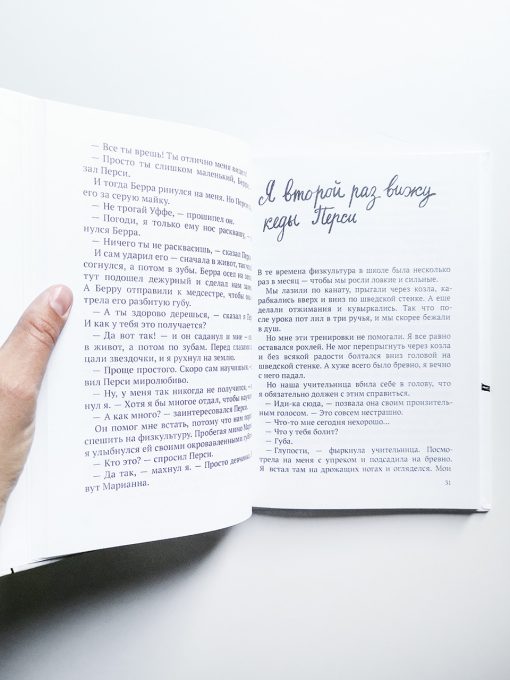 — Все ты врешь! Ты отлично меня видел!
— Просто ты слишком маленький, Берра, —
зал Перси.
И тогда Берра ринулся на меня. Но Перси
его за серую майку.
— Не трогай Уффе, — прошипел он.
— Погоди, я только ему нос расквашу, —
нулся Берра.
— Ничего ты не расквасишь, — сказал Пер
И сам ударил его — сначала в живот, так что
согнулся, а потом в зубы. Берра осел на зе
тут подошел дежурный и сделал нам зам
А Берру отправили к медсестре, чтобы она
трела его разбитую губу.
— А ты здорово дерешься, — сказал я Пе
И как у тебя это получается?
— Да вот так! — и он саданул и мне —
в живот, а потом по зубам. Перед глазами
цали звездочки, и я рухнул на землю.
— Проще простого. Скоро сам научишься,
вил Перси миролюбиво.
— Ну, у меня так никогда не получится, —
нул я. — Хотя я бы многое отдал, чтобы науч
— А как много? — заинтересовался Перси.
Он помог мне встать, потому что нам
спешить на физкультуру. Пробегая мимо Мар
я улыбнулся ей своими окровавленными губ
— Кто это? — спросил Перси.
— Да так, — махнул я. — Просто девчонка
вут Марианна.
Я второй раз вижу
кеды Перси
В те времена физкультура в школе была несколько
раз в месяц — чтобы мы росли ловкие и сильные.
Мы лазили по канату, прыгали через козла, ка-
рабкались вверх и вниз по шведской стенке. А еще
делали отжимания и кувыркались. Так что по-
сле урока пот лил в три ручья, и мы скорее бежали
в душ.
Но мне эти тренировки не помогали. Я все равно
оставался рохлей. Не мог перепрыгнуть через козла
и без всякой радости болтался вниз головой на
шведской стенке. А хуже всего было бревно, я вечно
с него падал.
Но наша учительница вбила себе в голову, что
я обязательно должен с этим справиться.
— Иди-ка сюда, — позвала она своим пронзитель-
ным голосом. — Это совсем нестрашно.
— Что-то мне сегодня нехорошо...
— Что у тебя болит?
— Губа.
— Глупости, — фыркнула учительница. Посмо-
трела на меня с упреком и подсадила на бревно.
Я встал там на дрожащих ногах и огляделся. Мои
51